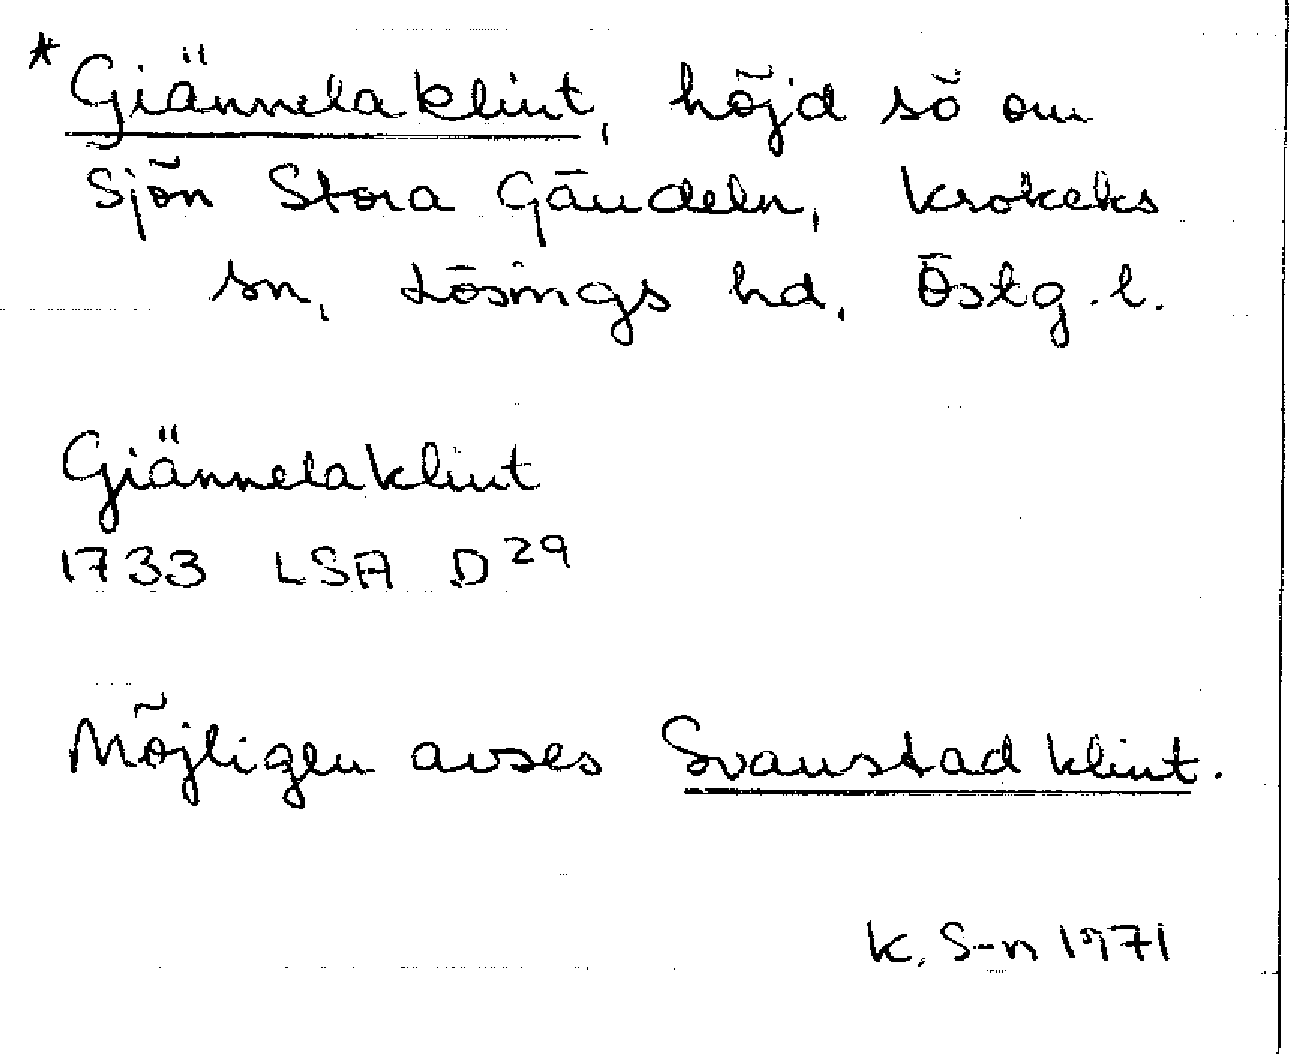 *Giännelaklint, höjd sö om
sjön Stora Gändeln, Krokeks
sn, Lösings hd, Östg.l.
Giännelaklint
1733 LSA D29
Möjligen avses Svanstadklint.
K. S-n 1971